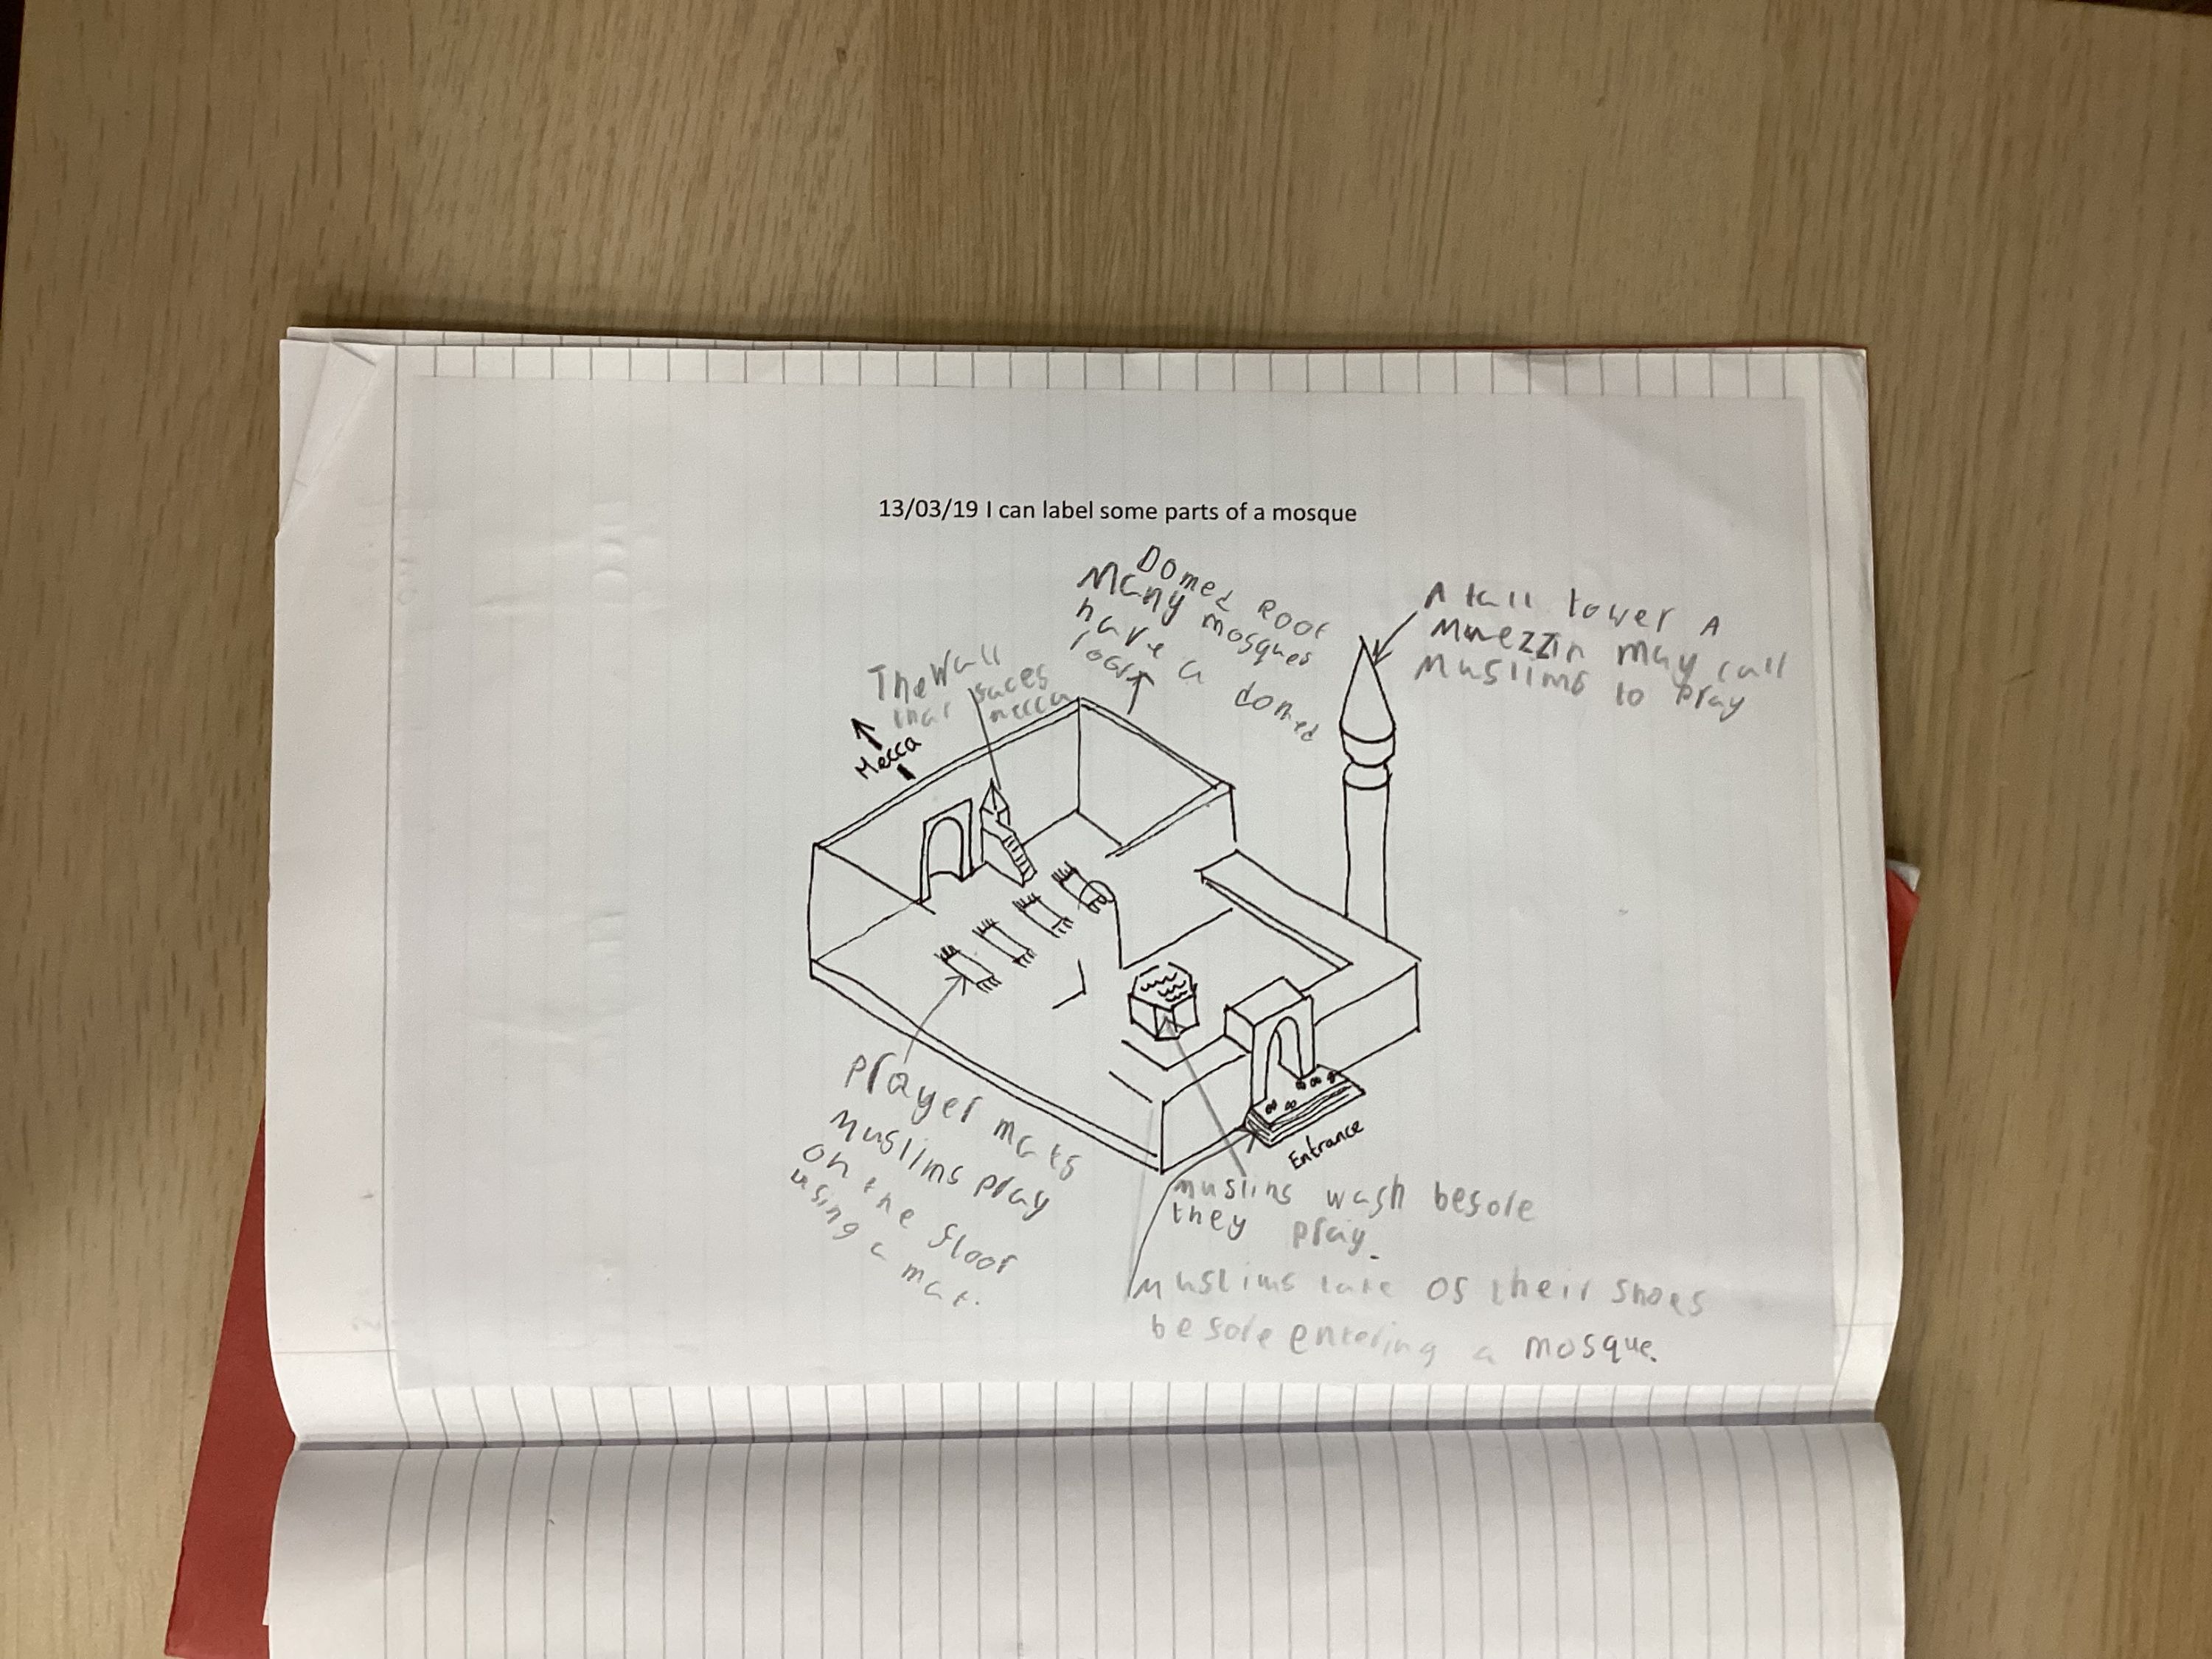 13/03/19 I can label some parts of a mosque
Domed Roof
Many mosques
have a domed
roof
A tall tower A
Muezzin may call
Muslims to pray
The Wall
that faces
mecca
Mecca
prayer mats
Muslims pray
on the floor
using a mat.
Entrance
muslims wash before
they pray.
Muslims take of their shoes
before entering a mosque.